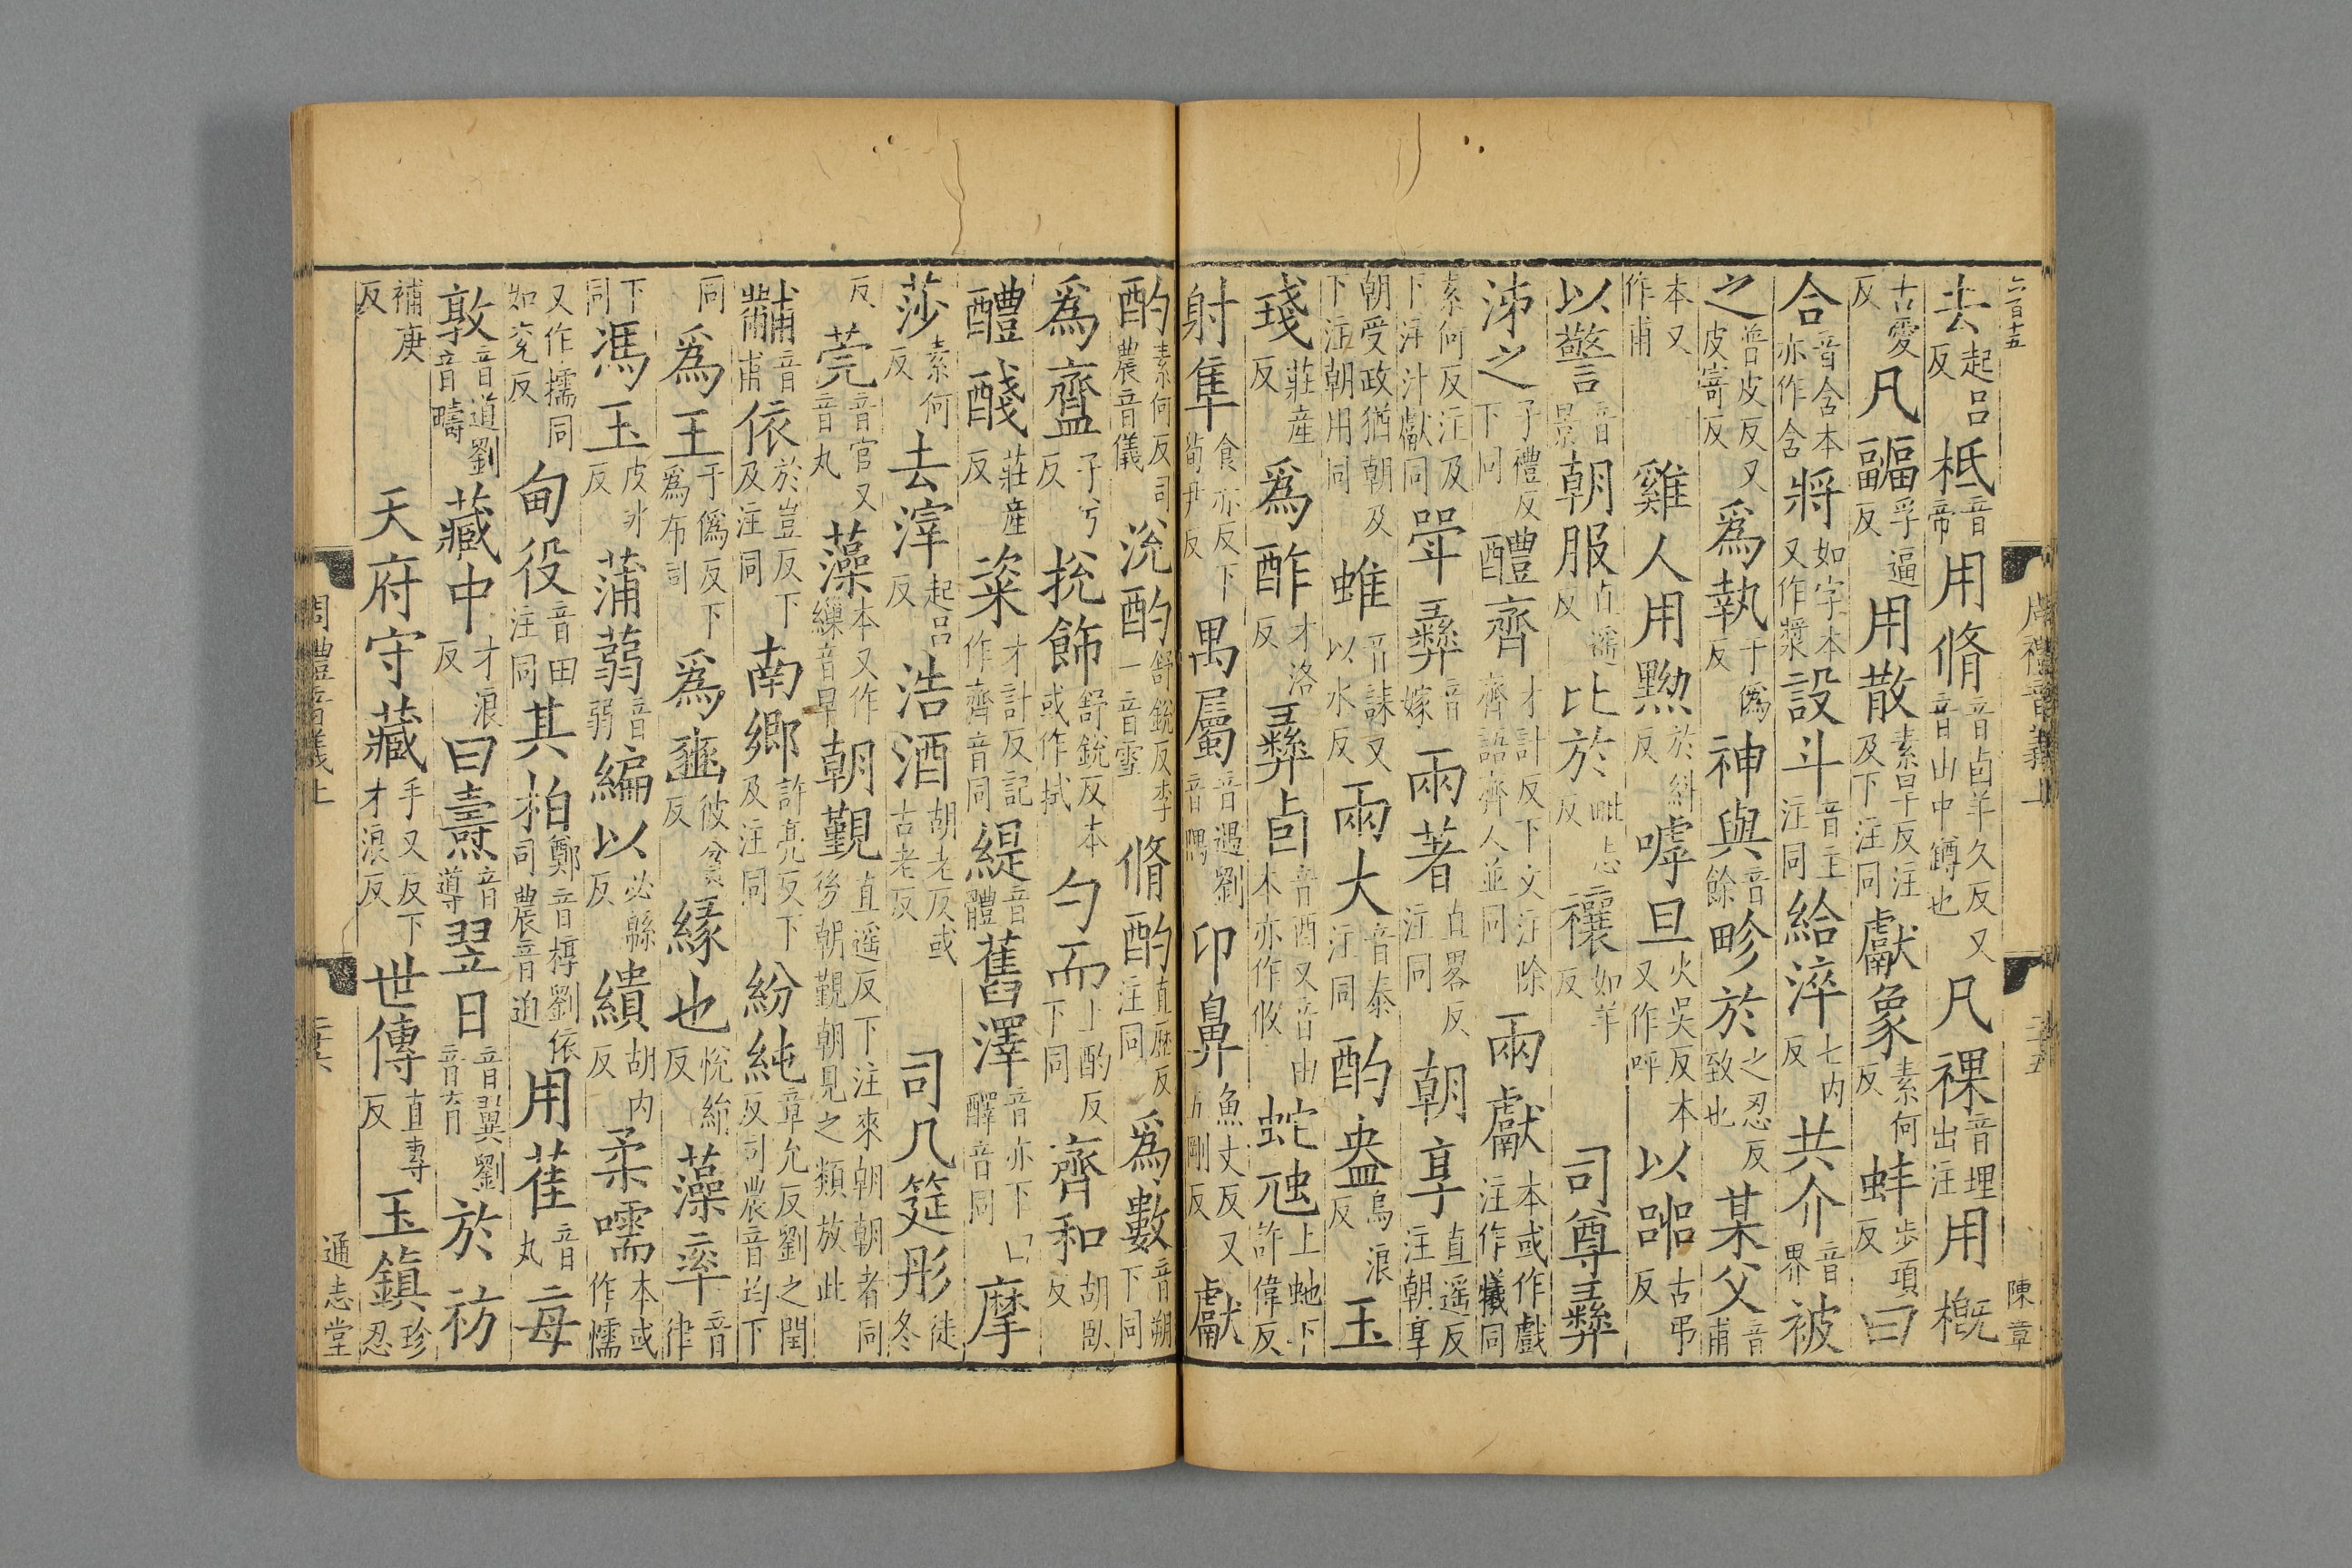 六百十五
去起呂反柢音帝用脩音卣羊久反又音由中罇也凡祼音埋出注用概
古愛反凡疈孚逼反用散素旱反注及下注同獻象素何反蚌步項反曰
合音含本亦作含將如字本又作漿設斗音主注同給淬七內反共介音界被
之普皮反又皮寄反爲執于僞反神與音餘畛於之忍反致也某父音甫
本又作甫雞人用黝於糾反嘑旦火吳反本又作呼以嘂古弔反
以警音景朝服直遥反比於毗志反禳如羊反司尊彝
泲之子禮反下同醴齊才計反下文注除齊語齊人並同兩獻本或作戲注作犧同
素何反注及下注汁獻同斝彝音嫁兩著直畧反注同朝享直遥反注朝享
朝受政猶朝及下注朝用同蜼音誄又以水反兩大音泰注同酌盎烏浪反玉
琖莊產反爲酢才洛反彝卣音酉又音由本亦作攸蛇虺上虵下許偉反
射隼食亦反下荀尹反禺屬音遇劉音隅卬鼻魚丈反又五剛反獻
周禮音義上
二十五
陳章
酌素何反司農音儀涗酌舒銳反李一音雪脩酌直歷反注同爲數音朔下同
爲齍子兮反挩飾舒銳反本或作拭勺而上酌反下同齊和胡臥反
醴醆莊產反粢才計反記作齊音同緹音體舊澤音亦下醳音同摩
莎素何反去滓起呂反浩酒胡老反或古老反司几筵彤徒冬
反莞音官又音丸藻本又作繅音早朝覲直遥反下注來朝朝者同後朝覲朝見之類放此
黼音甫依於豈反下及注同南鄉許亮反下及注同紛純章允反劉之閏反司農音均下
同爲王于僞反下爲布同爲豳彼貧反緣也悅絹反藻率音律
下同馮玉皮冰反蒲蒻音弱編以必緜反繢胡內反柔㬮本或作懦
又作擩同如兗反甸役音田注同其柏鄭音槨劉依司農音迫用萑音丸每
敦音道劉音疇藏中才浪反曰燾音導翌日音翼劉音育於祊
補庚反天府守藏手又反下才浪反世傳直專反玉鎮珍忍
周禮音義上
二十六
通志堂